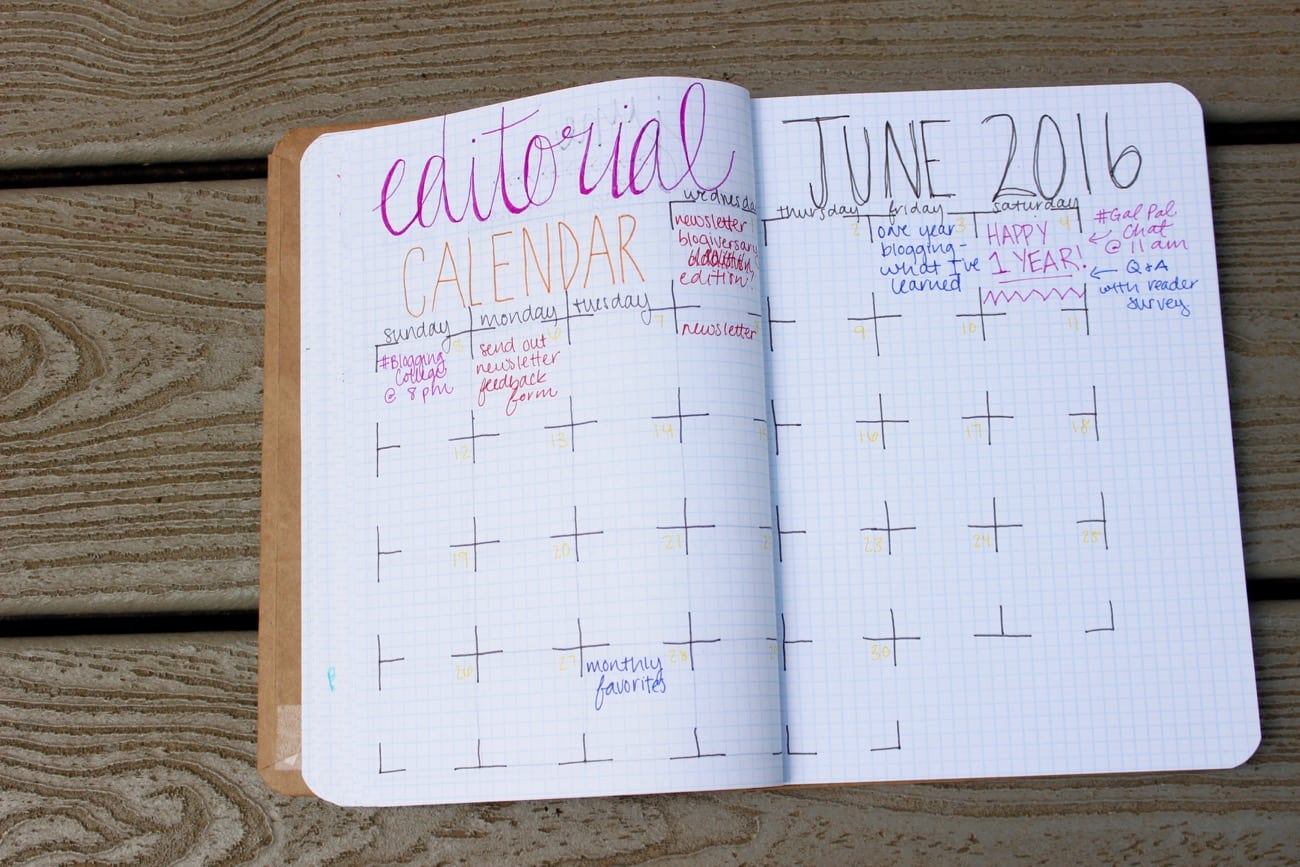 editorial
CALENDAR
JUNE 2016
wednesday
thursday
friday
saturday
newsletter
blogiversary
edition?
2
one year
blogging-
what I've
learned
3
HAPPY
1 YEAR!
4
#Gal Pal
Chat
@ 11 am
Q+A
with reader
survey
sunday
monday
tuesday
#Blogging
College
@ 8 pm
5
send out
newsletter
feedback
form
6
7
newsletter
8
9
10
11
12
13
14
15
16
17
18
19
20
21
23
24
25
26
27
monthly
favorites
28
29
30